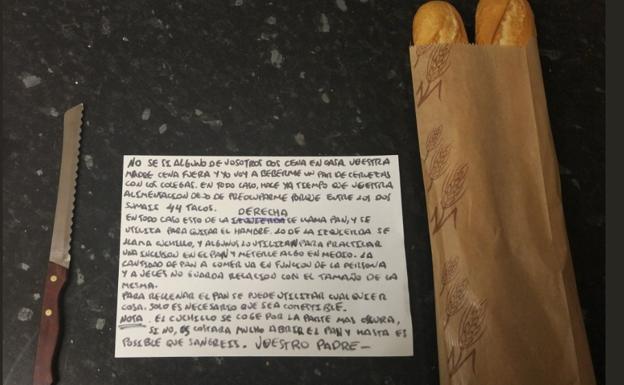 NO SE SI ALGUNO DE VOSOTROS DOS CENA EN CASA. VUESTRA
MADRE CENA FUERA Y YO VOY A BEBERME UN PAR DE CERVEZAS
CON LOS COLEGAS. EN TODO CASO, HACE YA TIEMPO QUE VUESTRA
ALIMENTACION DEJO DE PREOCUPARME PORQUE ENTRE LOS DOS
SUMAIS 44 TACOS.
DERECHA
EN TODO CASO ESTO DE LA IZQUIERDA SE LLAMA PAN, Y SE
UTILIZA PARA QUITAR EL HAMBRE. LO DE LA IZQUIERDA SE
LLAMA CUCHILLO, Y ALGUNOS LO UTILIZAN PARA PRACTICAR
UNA INCISION EN EL PAN Y METERLE ALGO EN MEDIO. LA
CANTIDAD DE PAN A COMER VA EN FUNCION DE LA PERSONA
Y A VECES NO GUARDA RELACION CON EL TAMAÑO DE LA
MISMA.
PARA RELLENAR EL PAN SE PUEDE UTILIZAR CUALQUIER
COSA. SOLO ES NECESARIO QUE SEA COMESTIBLE.
NOTA. EL CUCHILLO SE COGE POR LA PARTE MAS OSCURA,
SI NO, OS COSTARA MUCHO ABRIR EL PAN Y HASTA ES
POSIBLE QUE SANGREIS. VUESTRO PADRE-